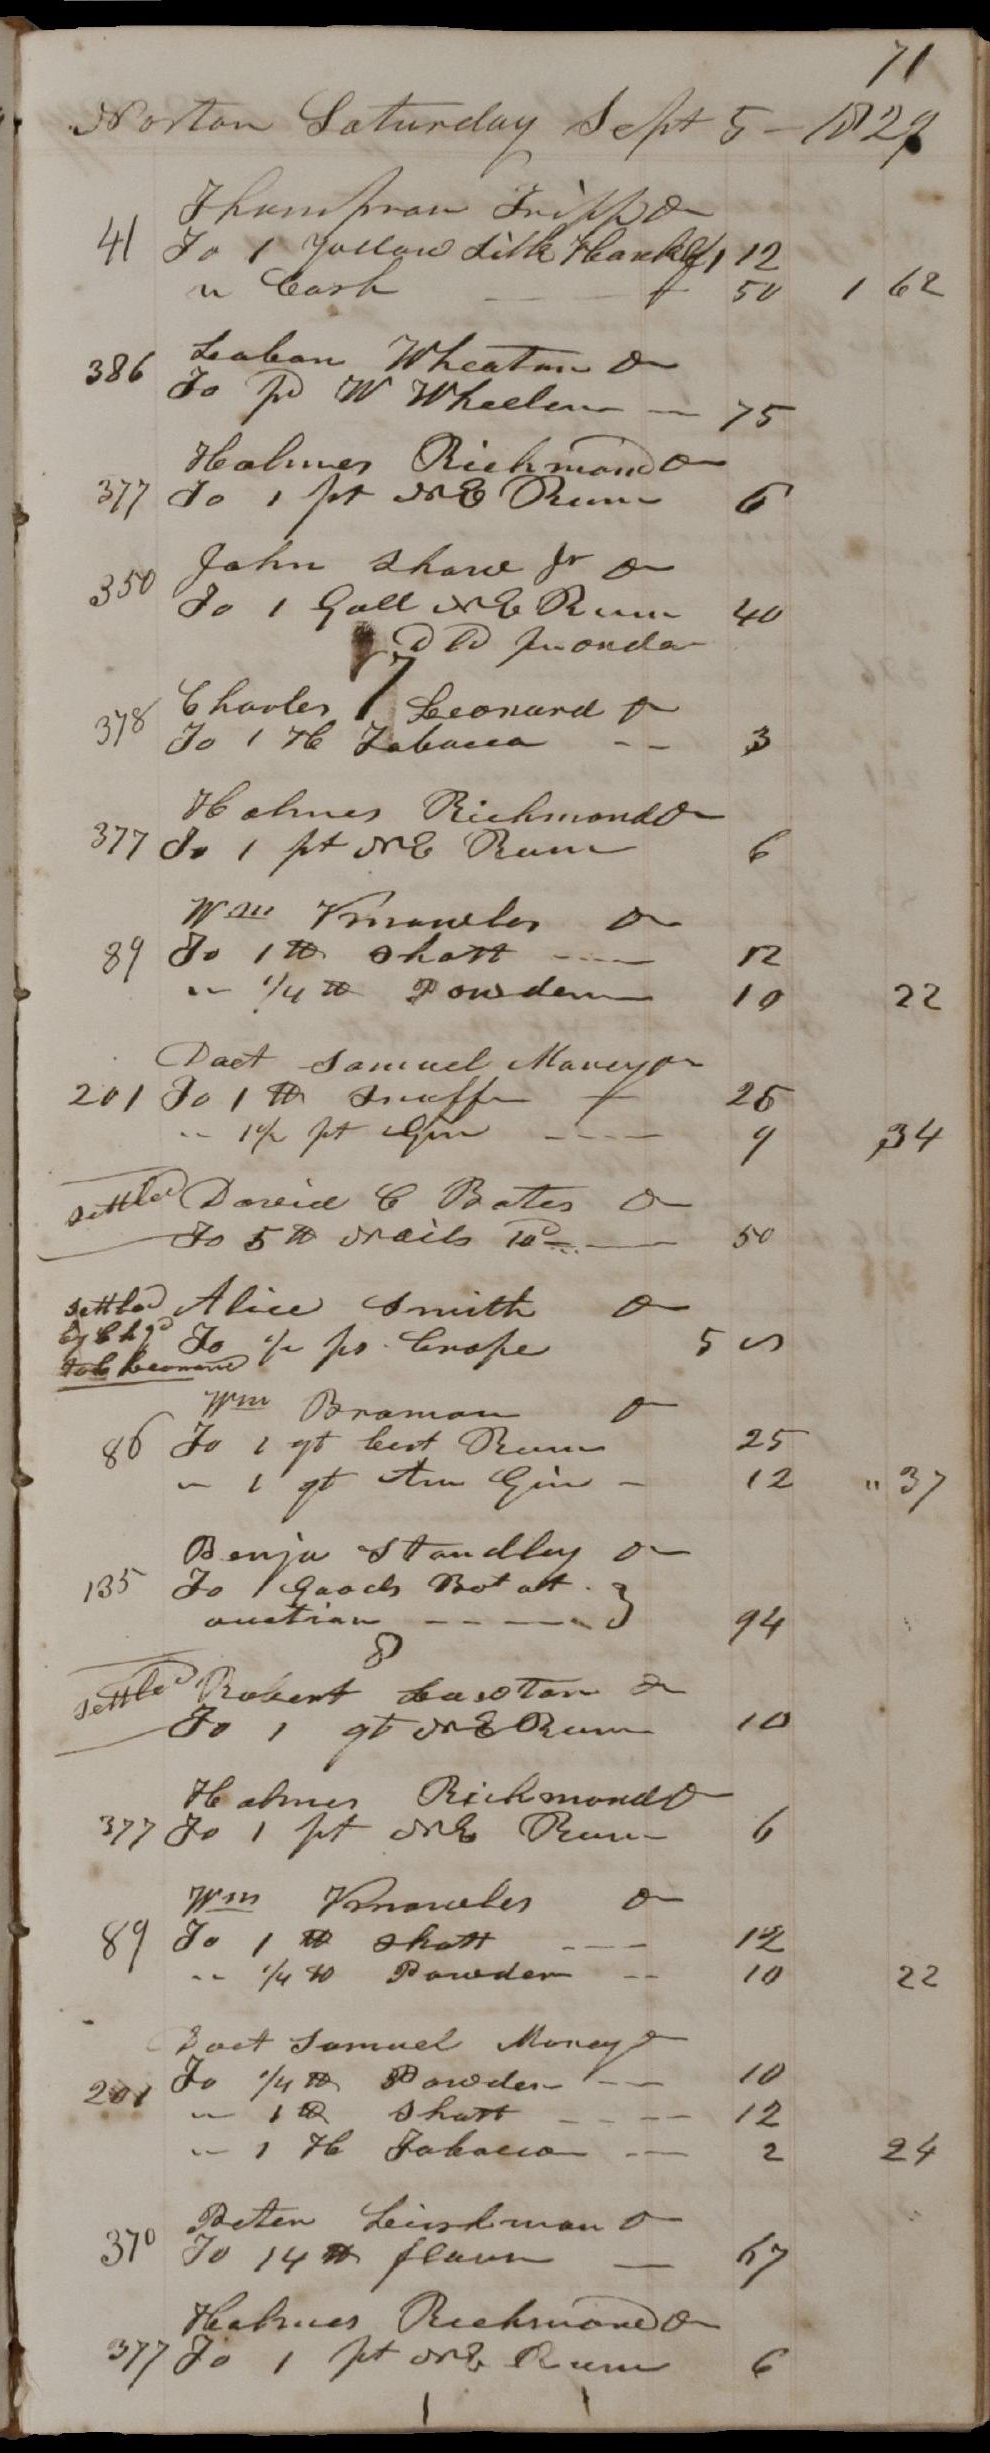 71
Norton Saturday Sept 5 - 1829
Thompson Tripp Dr
41 To 1 Yellow Silk Handkf 1 12
" Cash 50 1 62
386 Laban Wheaton Dr
To pd W Wheeler 75
Holmes Richmond Dr
377 To 1 pt NE Rum 6
John Shaw Jr Dr
350 To 1 Gall NE Rum 40
DD pr order
Charles Leonard Dr
378 To 1 H Tobacco 3
Holmes Richmond Dr
377 To 1 pt NE Rum 6
Wm Knowles Dr
89 To 1 lb Shott 12
" 1/4 lb Powder 10 22
Doct Samuel Morey Dr
201 To 1 lb Snuff 25
" 1 1/2 pt Gin 9 34
Settled David C Bates Dr
To 5 lb Nails 10d 50
Settled Alice Smith Dr
by Chgd To 1/2 ps Crape 5 00
to C Leonard
Wm Braman Dr
86 To 1 qt best Rum 25
" 1 qt Am Gin 12 " 37
Benja Standley Dr
135 To 1 Goods Bot att
auction 94
8
Settled Robert Lawton Dr
To 1 qt NE Rum 10
Holmes Richmond Dr
377 To 1 pt NE Rum 6
Wm Knowles Dr
89 To 1 lb Shott 12
" 1/4 lb Powder 10 22
Doct Samuel Morey Dr
201 To 1/4 lb Powder 10
" 1 lb Shott 12
" 1 H Tobacco 2 24
Peter Dr
370 To 14 lb flour 67
Holmes Richmond Dr
377 To 1 pt NE Rum 6